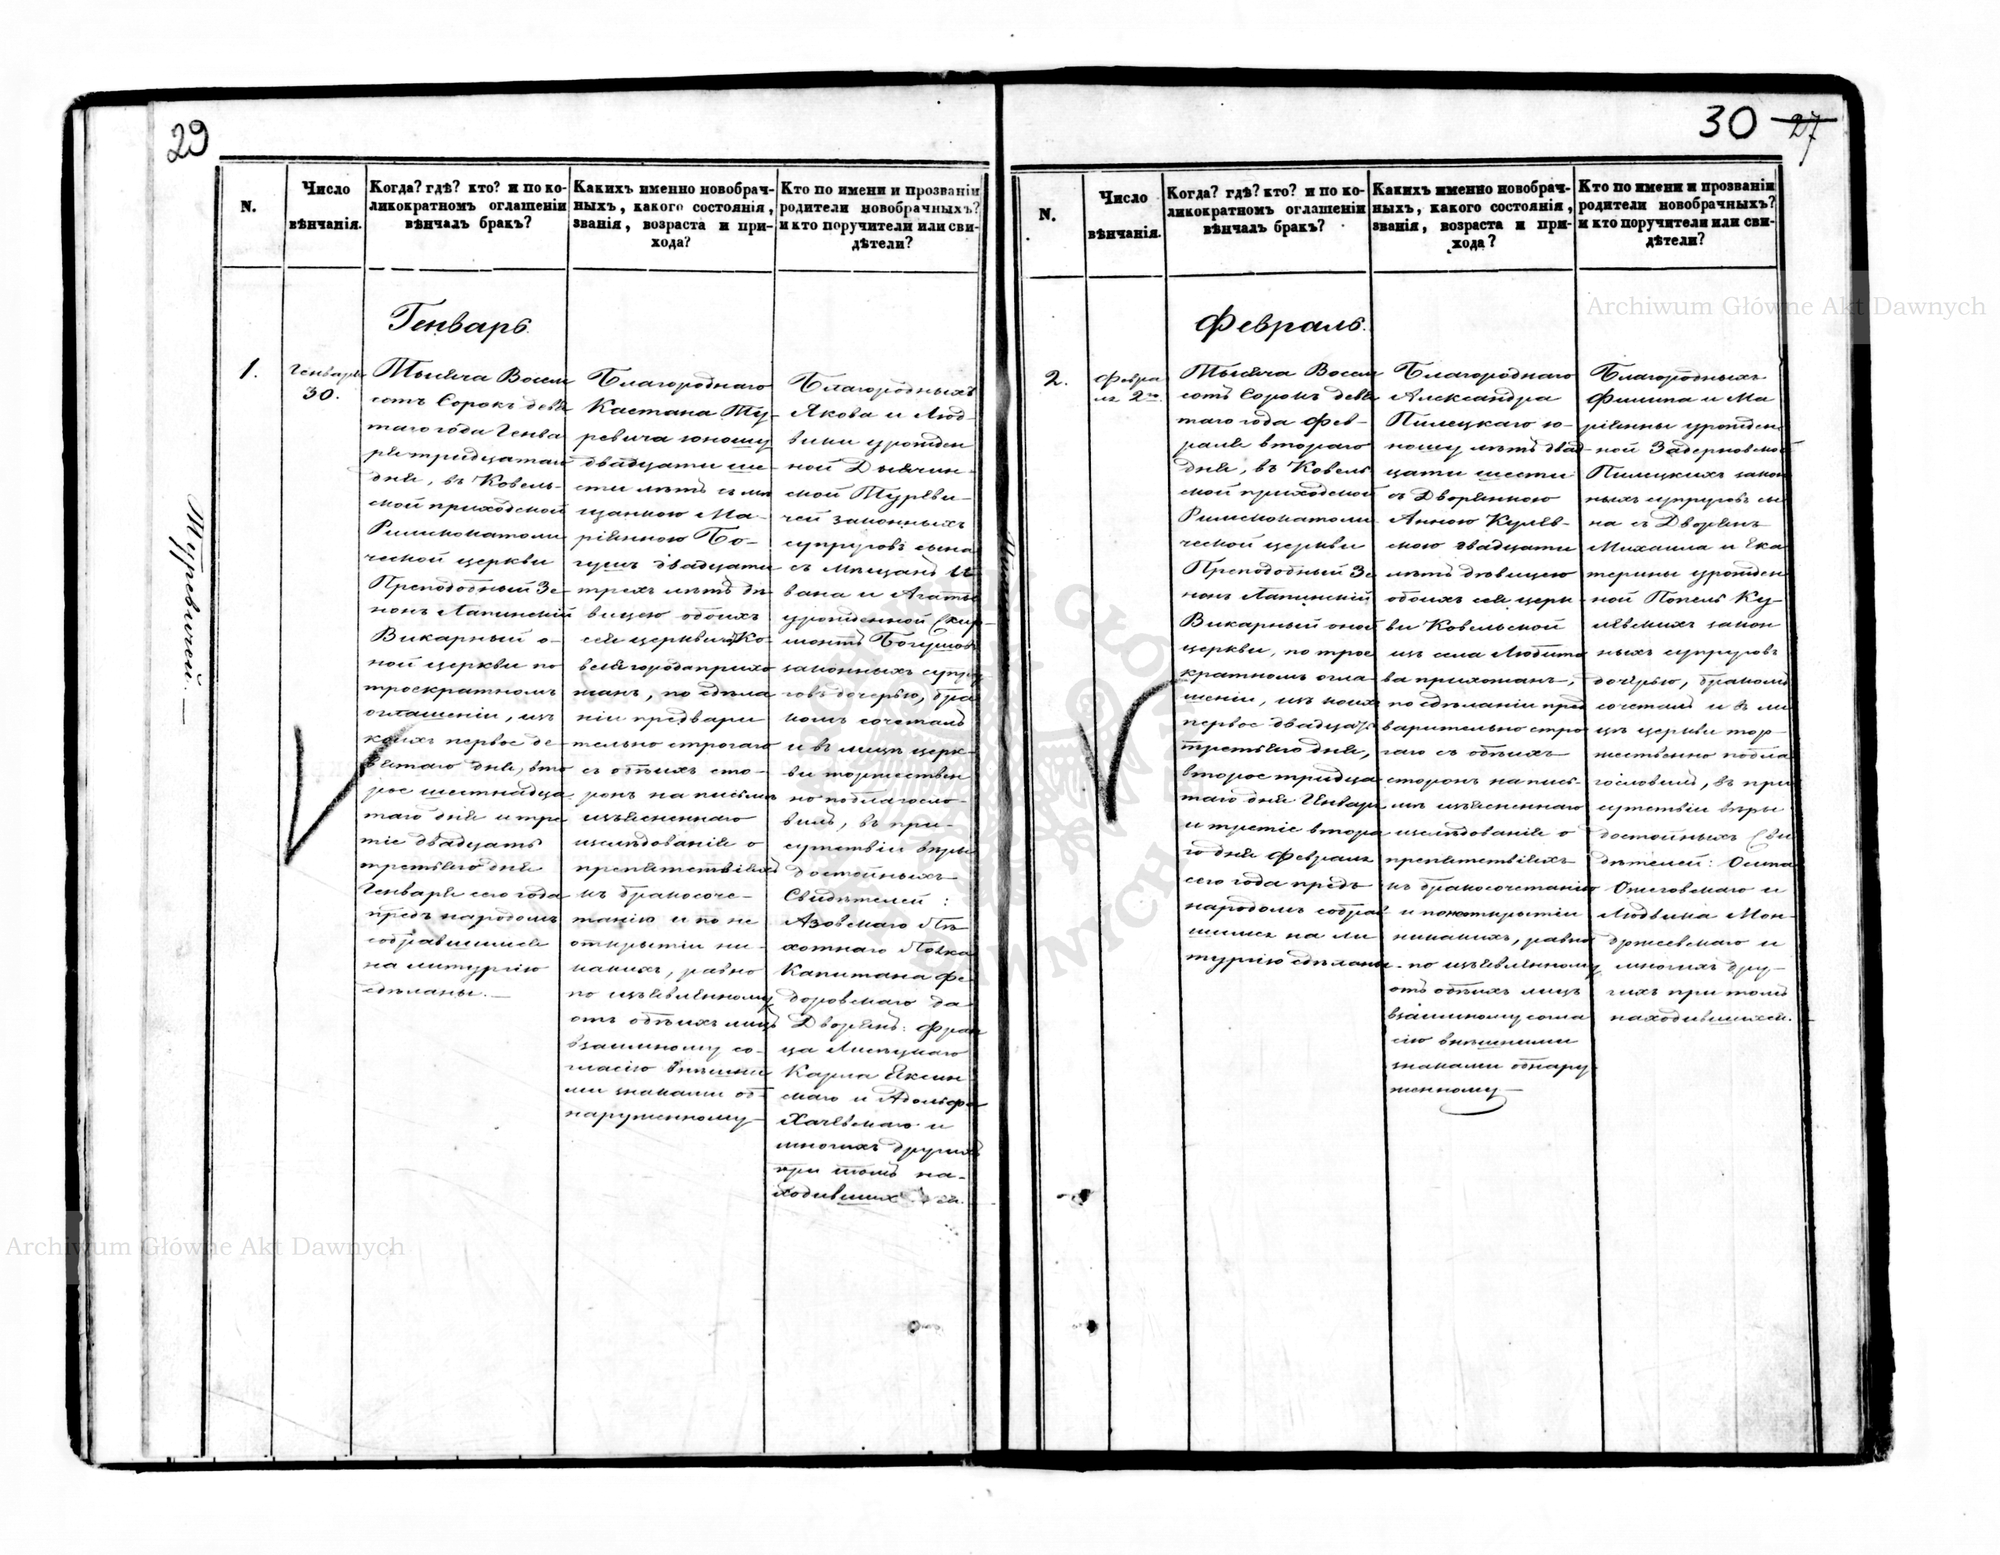 29
N.
Число
вѣнчанія.
Когда? гдѣ? кто? и по ко-
ликократномъ оглашеніи
вѣнчалъ бракъ?
Какихъ именно новобрач-
ныхъ, какого состоянія,
званія, возраста и при-
хода?
Кто по имени и прозванію
родители новобрачныхъ?
и кто поручители или сви-
дѣтели?
Генварь.
1.
Генваря
30.
Тысяча Восем
сотъ Сорокъ девя
таго года Генва
ря тридцатаго
дня, въ Ковель-
ской приходской
Римскокатоли
ческой церкви
Преподобный Зе-
нонъ Лапинскій
Викарный о-
ной церкви по
троекратномъ
оглашеніи, изъ
коихъ первое де-
вятаго дня, вто
рое шестнадца
таго дня и тре
тіе двадцать
третьяго дня
Генваря сего года
предъ народомъ
собравшимся
на литургію
сдѣланы.—
Благороднаго
Каетана Ту-
ревича юношу
двадцати ше-
сти лѣтъ съ мѣ
щанкою Ма-
ріянною Бо-
гушъ двадцати
трехъ лѣтъ дѣ
вицею обоихъ
сея церкви Ко-
веля города прихо
жанъ, по сдѣла
ніи предвари
тельно строгаго
съ обѣихъ сто-
ронъ на письмѣ
изъясненнаго
изслѣдованія о
препятствіяхъ
къ бракосоче-
танію и по не
открытіи ни-
какихъ, равно
по изъявленному
отъ обѣихъ лицъ
взаимному со-
гласію внѣшни
ми знаками об-
наруженному—
Благородныхъ
Якова и Люд-
вики урожден
ной
ской Туреви-
чей законныхъ
супруговъ сына
съ Мѣщанъ И
вана и Агаты
урожденной
Богушовъ
законныхъ супру
говъ дочерью, бра
комъ сочеталъ
и въ лицѣ церк-
ви торжествен
но поблагосло-
вилъ, въ при-
сутствіи вѣры
достойныхъ
Свидѣтелей:
Азовскаго Пѣ-
хотнаго Полка
Капитана Фе-
доровскаго да
Дворянъ: Фран
ца
Карла
скаго и Адольфа
и
многихъ другихъ
при томъ на-
ходившихся.
Туревичей.—
30 27
N.
Число
вѣнчанія.
Когда? гдѣ? кто? и по ко-
ликократномъ оглашеніи
вѣнчалъ бракъ?
Какихъ именно новобрач-
ныхъ, какого состоянія,
званія, возраста и при-
хода?
Кто по имени и прозванію
родители новобрачныхъ?
и кто поручители или сви-
дѣтели?
Февраль.
2.
Февра
ля 2го.
Тысяча Восем
сотъ Сорокъ девя
таго года Фев-
раля втораго
дня, въ Ковель
ской приходской
Римскокатоли
ческой церкви
Преподобный Зе
нонъ Лапинскій
Викарный оной
церкви, по трое
кратномъ огла
шеніи, изъ коихъ
первое двадцать
третьяго дня,
второе тридца
таго дня Генваря
и третіе втора
го дня Февраля
сего года предъ
народомъ собрав
шимся на ли
тургію сдѣланы.
Благороднаго
Александра
Пилецкаго ю-
ношу лѣтъ двад
цати шести
съ Дворянкою
Анною Куляв-
скою двадцати
лѣтъ дѣвицею
обоихъ сея церк
ви Ковельской
изъ села Любито
ва прихожанъ,
по сдѣланіи пред
варительно стро
гаго съ обѣихъ
сторонъ на пись
мѣ изъясненнаго
изслѣдованія о
препятствіяхъ
къ бракосочетанію
и по неоткрытіи
никакихъ, равно
по изъявленному
отъ обѣихъ лицъ
взаимному согла
сію внѣшними
знаками обнару
женному—
Благородныхъ
Филипа и Ма
ріянны урожден
ной Задерновской
Пилецкихъ закон
ныхъ супруговъ сы
на съ Дворянъ
Михаила и Ека
терины урожден
ной Попель Ку-
лявскихъ закон
ныхъ супруговъ
дочерью, бракомъ
сочеталъ и въ ли
цѣ церкви тор-
жественно побла
гословилъ, въ при
сутствіи вѣры
достойныхъ Сви
дѣтелей: Осипа
и
Людвика Мон-
држевскаго и
многихъ дру-
гихъ при томъ
находившихся.
Archiwum Główne Akt Dawnych
Archiwum Główne Akt Dawnych
ARCHIWUM GŁÓWNE AKT DAWNYCH